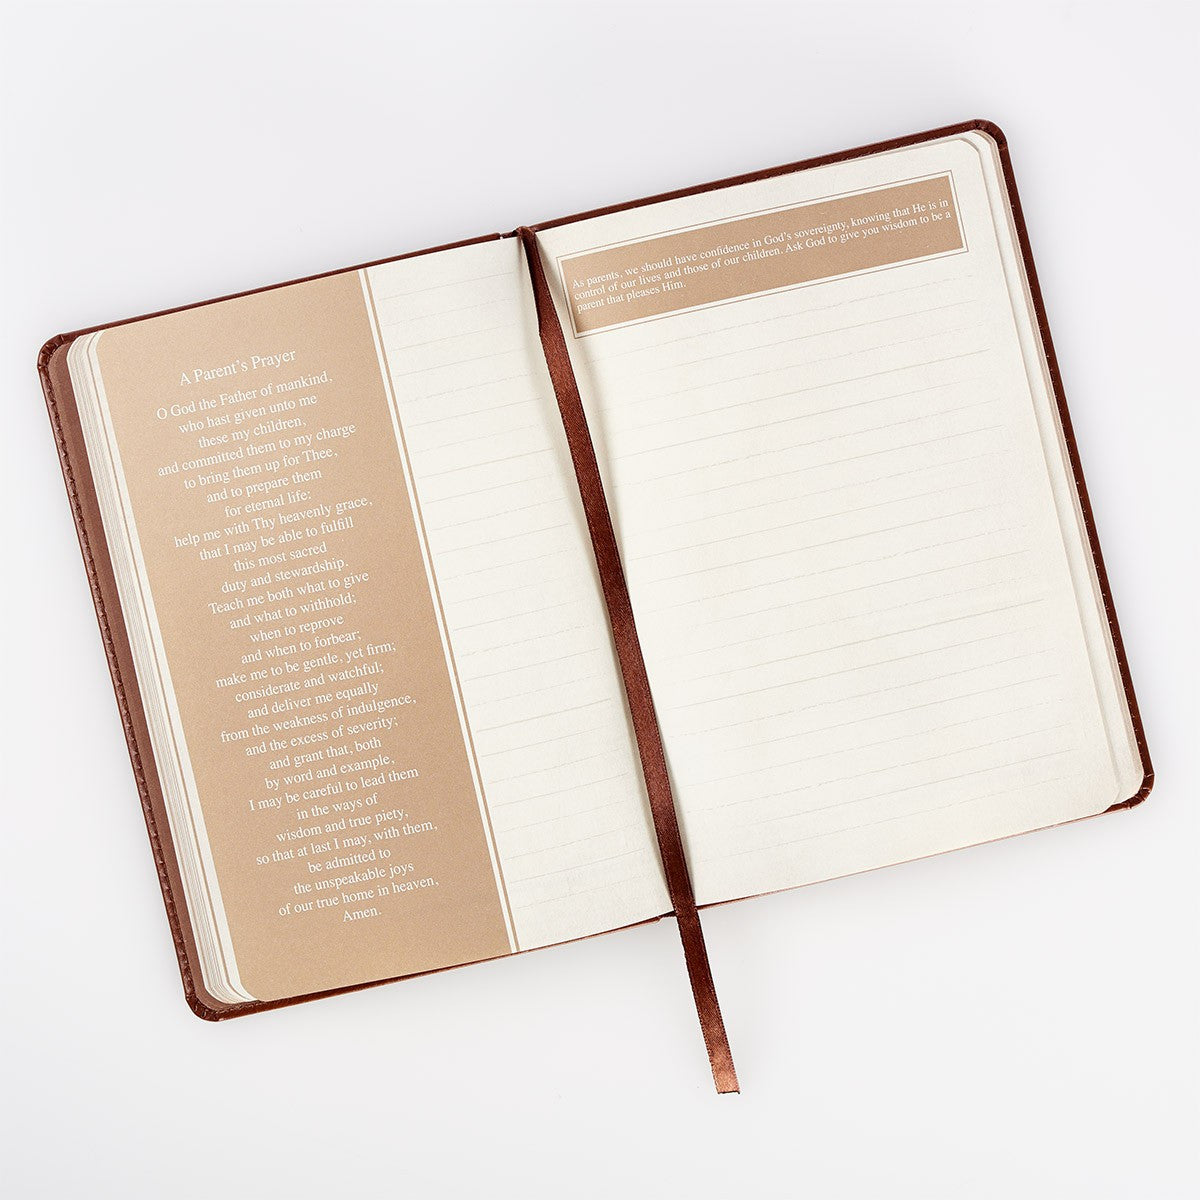 A Parent's Prayer
O God the Father of mankind,
who hast given unto me
these my children,
and committed them to my charge
to bring them up for Thee,
and to prepare them
for eternal life:
help me with Thy heavenly grace,
that I may be able to fulfill
this most sacred
duty and stewardship.
Teach me both what to give
and what to withhold;
when to reprove
and when to forbear;
make me to be gentle, yet firm;
considerate and watchful;
and deliver me equally
from the weakness of indulgence,
and the excess of severity;
and grant that, both
by word and example,
I may be careful to lead them
in the ways of
wisdom and true piety,
so that at last I may, with them,
be admitted to
the unspeakable joys
of our true home in heaven,
Amen.
As parents, we should have confidence in God's sovereignty, knowing that He is in
control of our lives and those of our children. Ask God to give you wisdom to be a
parent that pleases Him.